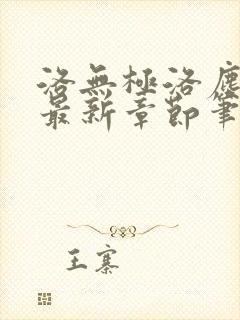 洛無極洛塵
最新章節筆
王寨